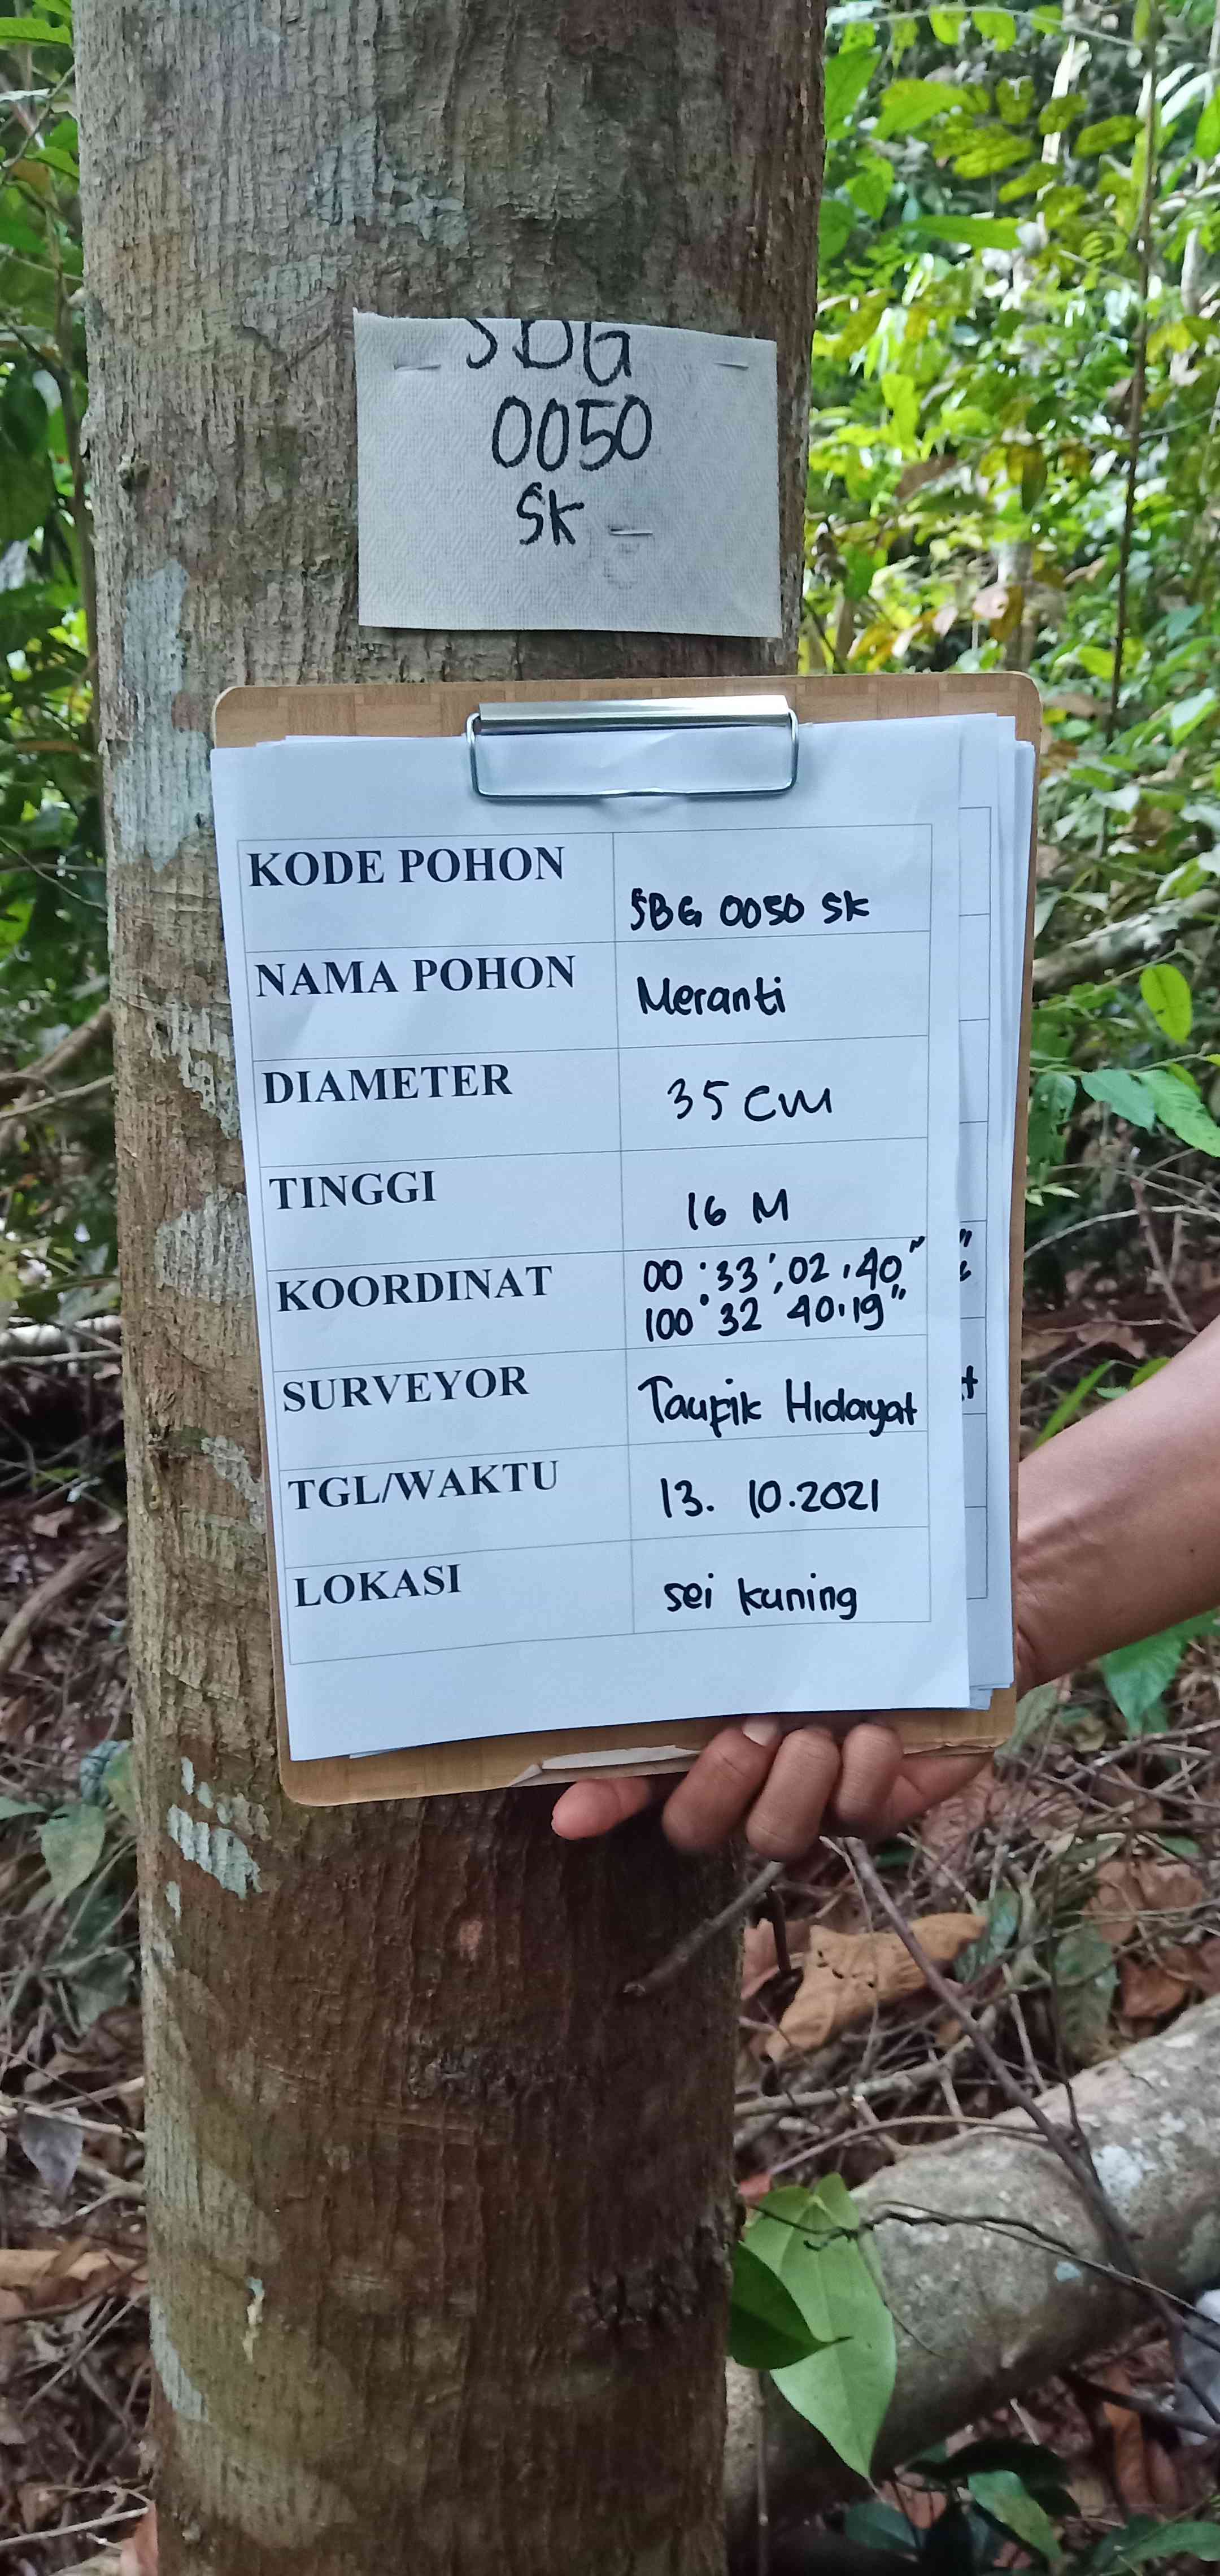 SBG
0050
SK
KODE POHON
SBG 0050 SK
NAMA POHON
Meranti
DIAMETER
35 cm
TINGGI
16 M
KOORDINAT
00°33',02,40"
100°32 40.19"
SURVEYOR
Taufik Hidayat
TGL/WAKTU
13. 10.2021
LOKASI
sei kuning